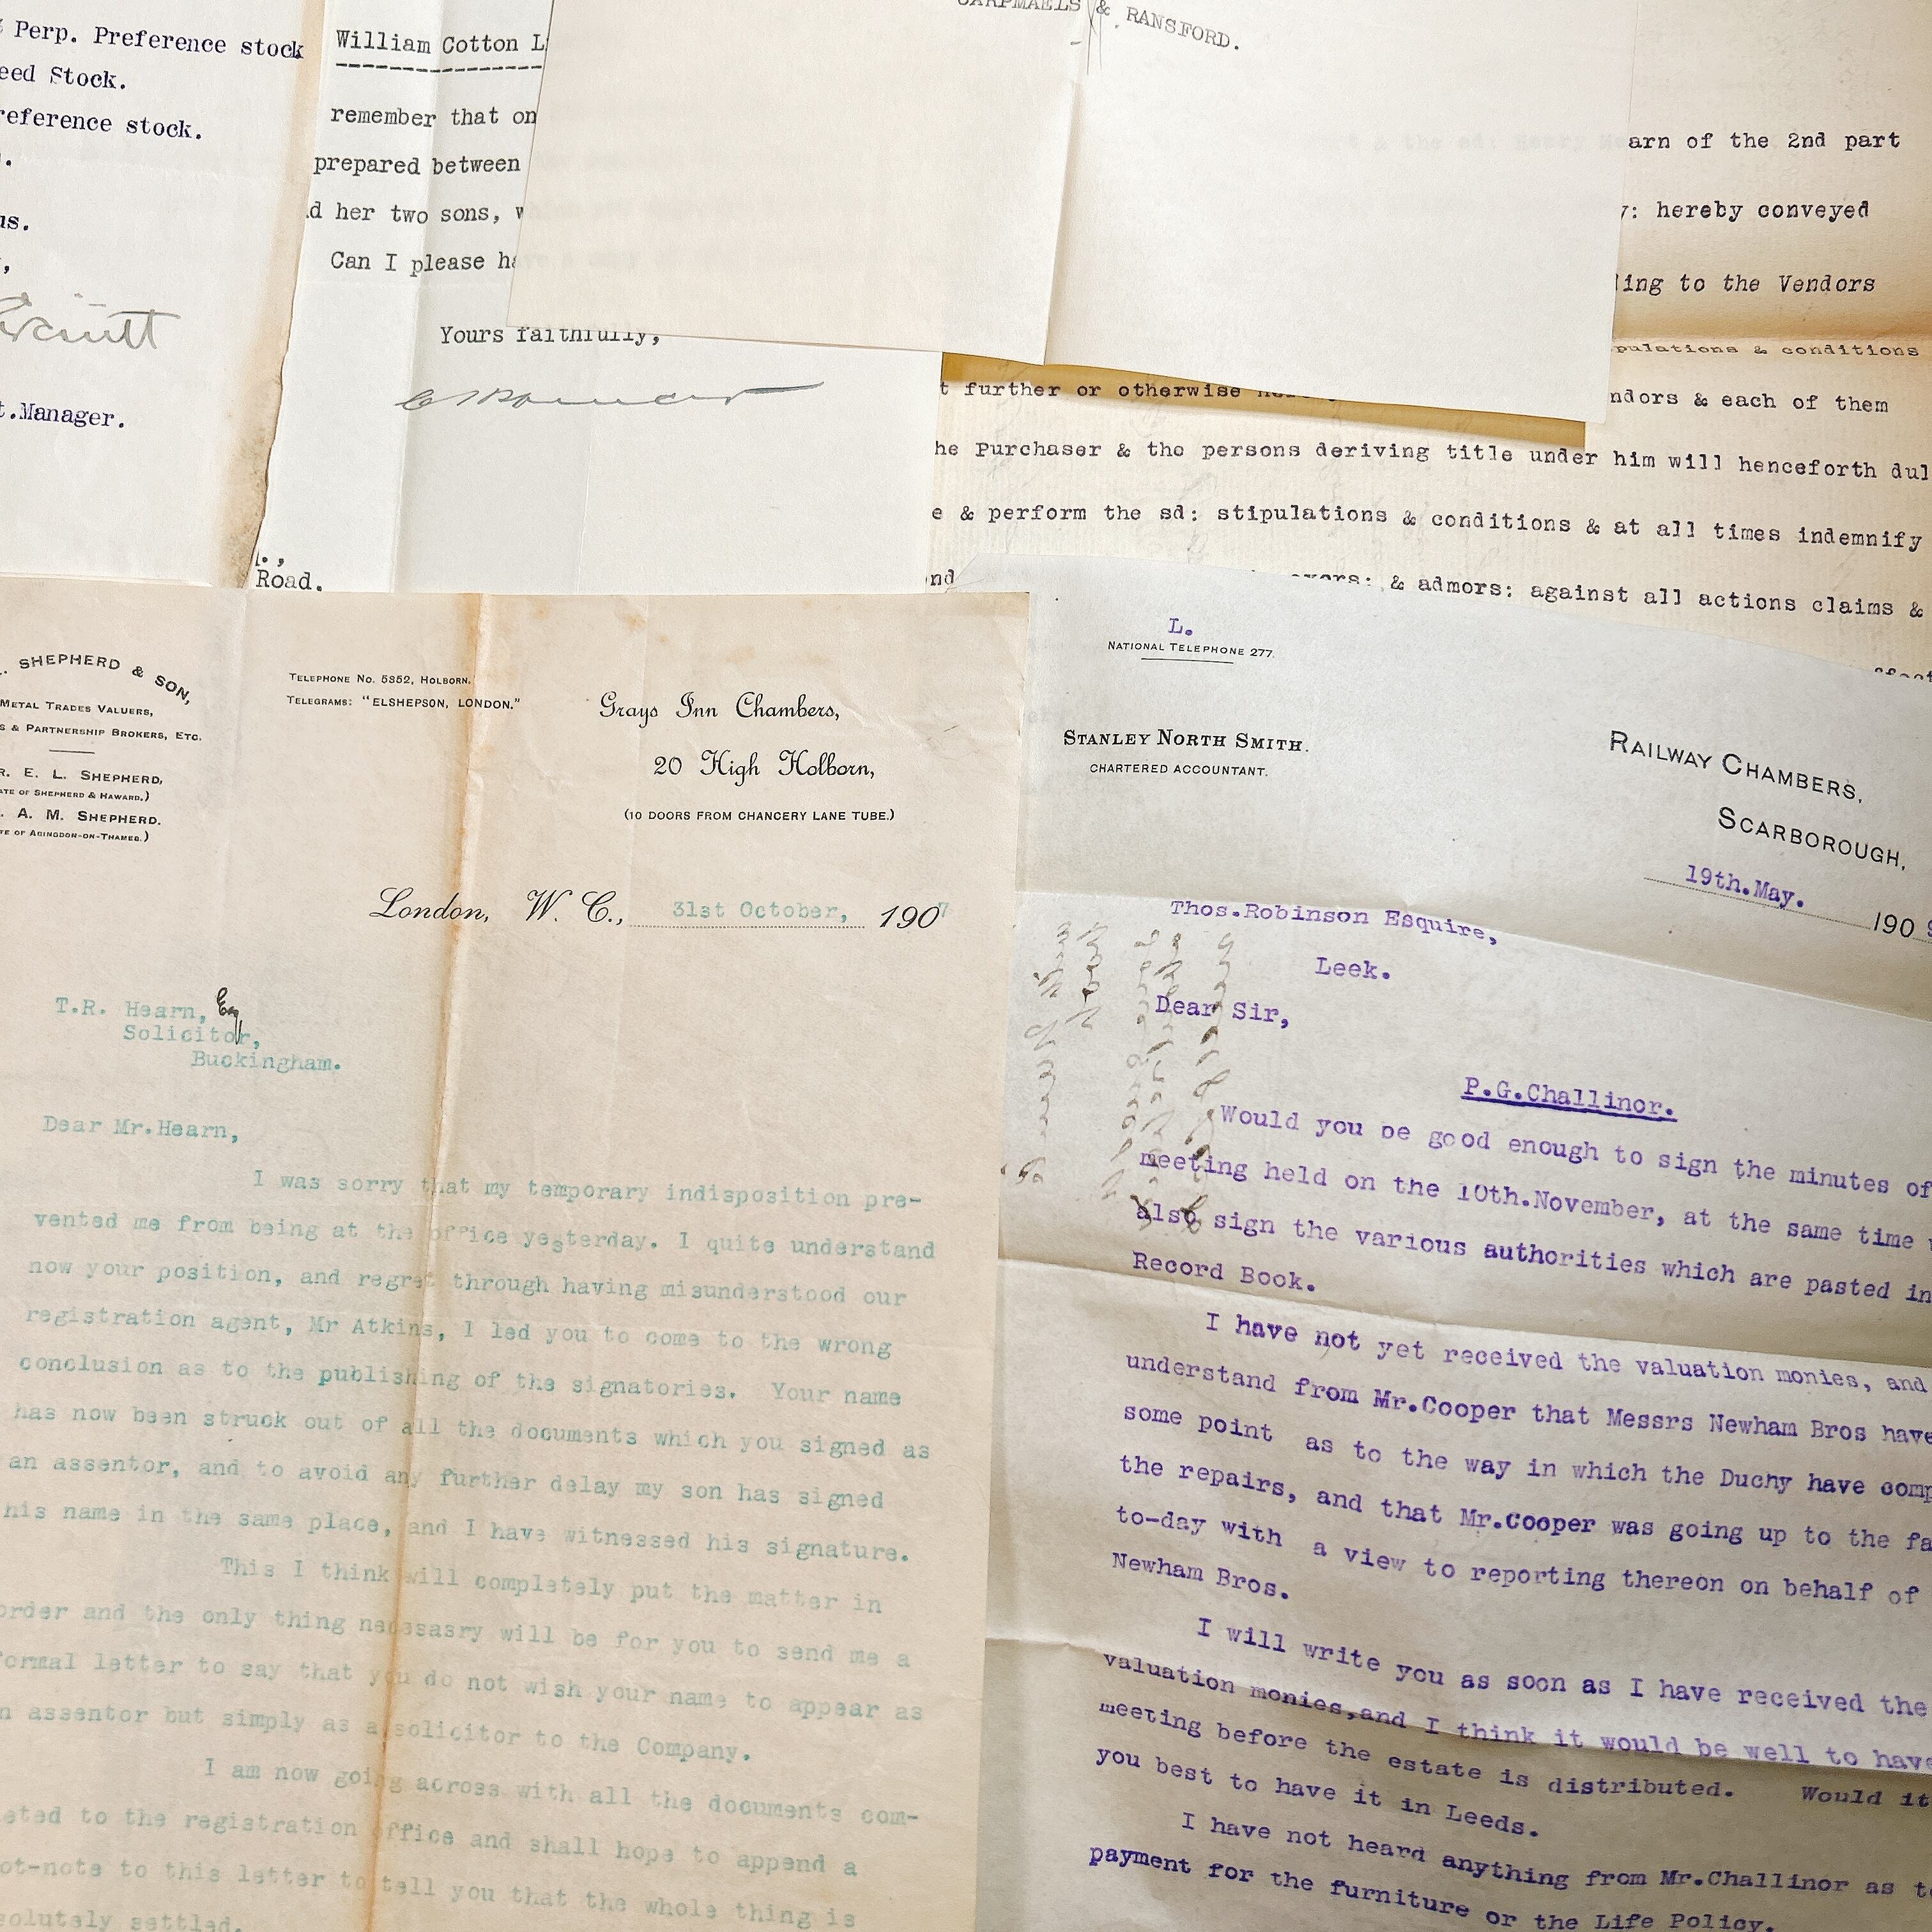 Perp. Preference stock
Stock.
stock.
Manager.
William Cotton
remember that on
prepared between
her two sons,
Can I please
Yours faithfully,
Road.
CARPMAELS & RANSFORD.
of the 2nd part
hereby conveyed
to the Vendors
& conditions
further or otherwise
& each of them
Purchaser & the persons deriving title under him will henceforth
& perform the sd: stipulations & conditions & at all times indemnify
& admors: against all actions claims &
SHEPHERD & SON,
METAL TRADES VALUERS,
& PARTNERSHIP BROKERS, ETC.
E. L. SHEPHERD,
OF SHEPHERD & HAWARD.)
A. M. SHEPHERD.
OF ABINGDON-ON-THAMES.)
TELEPHONE No. 5352, HOLBORN.
TELEGRAMS: "ELSHEPSON, LONDON."
Grays Inn Chambers,
20 High Holborn,
(10 DOORS FROM CHANCERY LANE TUBE.)
London, W. C., 31st October, 1907
T.R. Hearn, Esq
Solicitor,
Buckingham.
Dear Mr.Hearn,
I was sorry that my temporary indisposition pre-
vented me from being at the office yesterday. I quite understand
now your position, and regret through having misunderstood our
registration agent, Mr Atkins, I led you to come to the wrong
conclusion as to the publishing of the signatories. Your name
has now been struck out of all the documents which you signed as
an assentor, and to avoid any further delay my son has signed
his name in the same place, and I have witnessed his signature.
This I think will completely put the matter in
order and the only thing necesasry will be for you to send me a
formal letter to say that you do not wish your name to appear as
an assentor but simply as a solicitor to the Company.
I am now going across with all the documents com-
to the registration office and shall hope to append a
to this letter to tell you that the whole thing is
settled.
L.
NATIONAL TELEPHONE 277.
STANLEY NORTH SMITH.
CHARTERED ACCOUNTANT.
RAILWAY CHAMBERS,
SCARBOROUGH,
19th.May. 190
Thos.Robinson Esquire,
Leek.
Dear Sir,
P.G.Challinor.
Would you be good enough to sign the minutes of
meeting held on the 10th.November, at the same time
also sign the various authorities which are pasted in
Record Book.
I have not yet received the valuation monies, and
understand from Mr.Cooper that Messrs Newham Bros have
some point as to the way in which the Duchy have
the repairs, and that Mr.Cooper was going up to the
to-day with a view to reporting thereon on behalf of
Newham Bros.
I will write you as soon as I have received the
valuation monies,and I think it would be well to have
meeting before the estate is distributed. Would it
you best to have it in Leeds.
I have not heard anything from Mr.Challinor as to
payment for the furniture or the Life Policy.